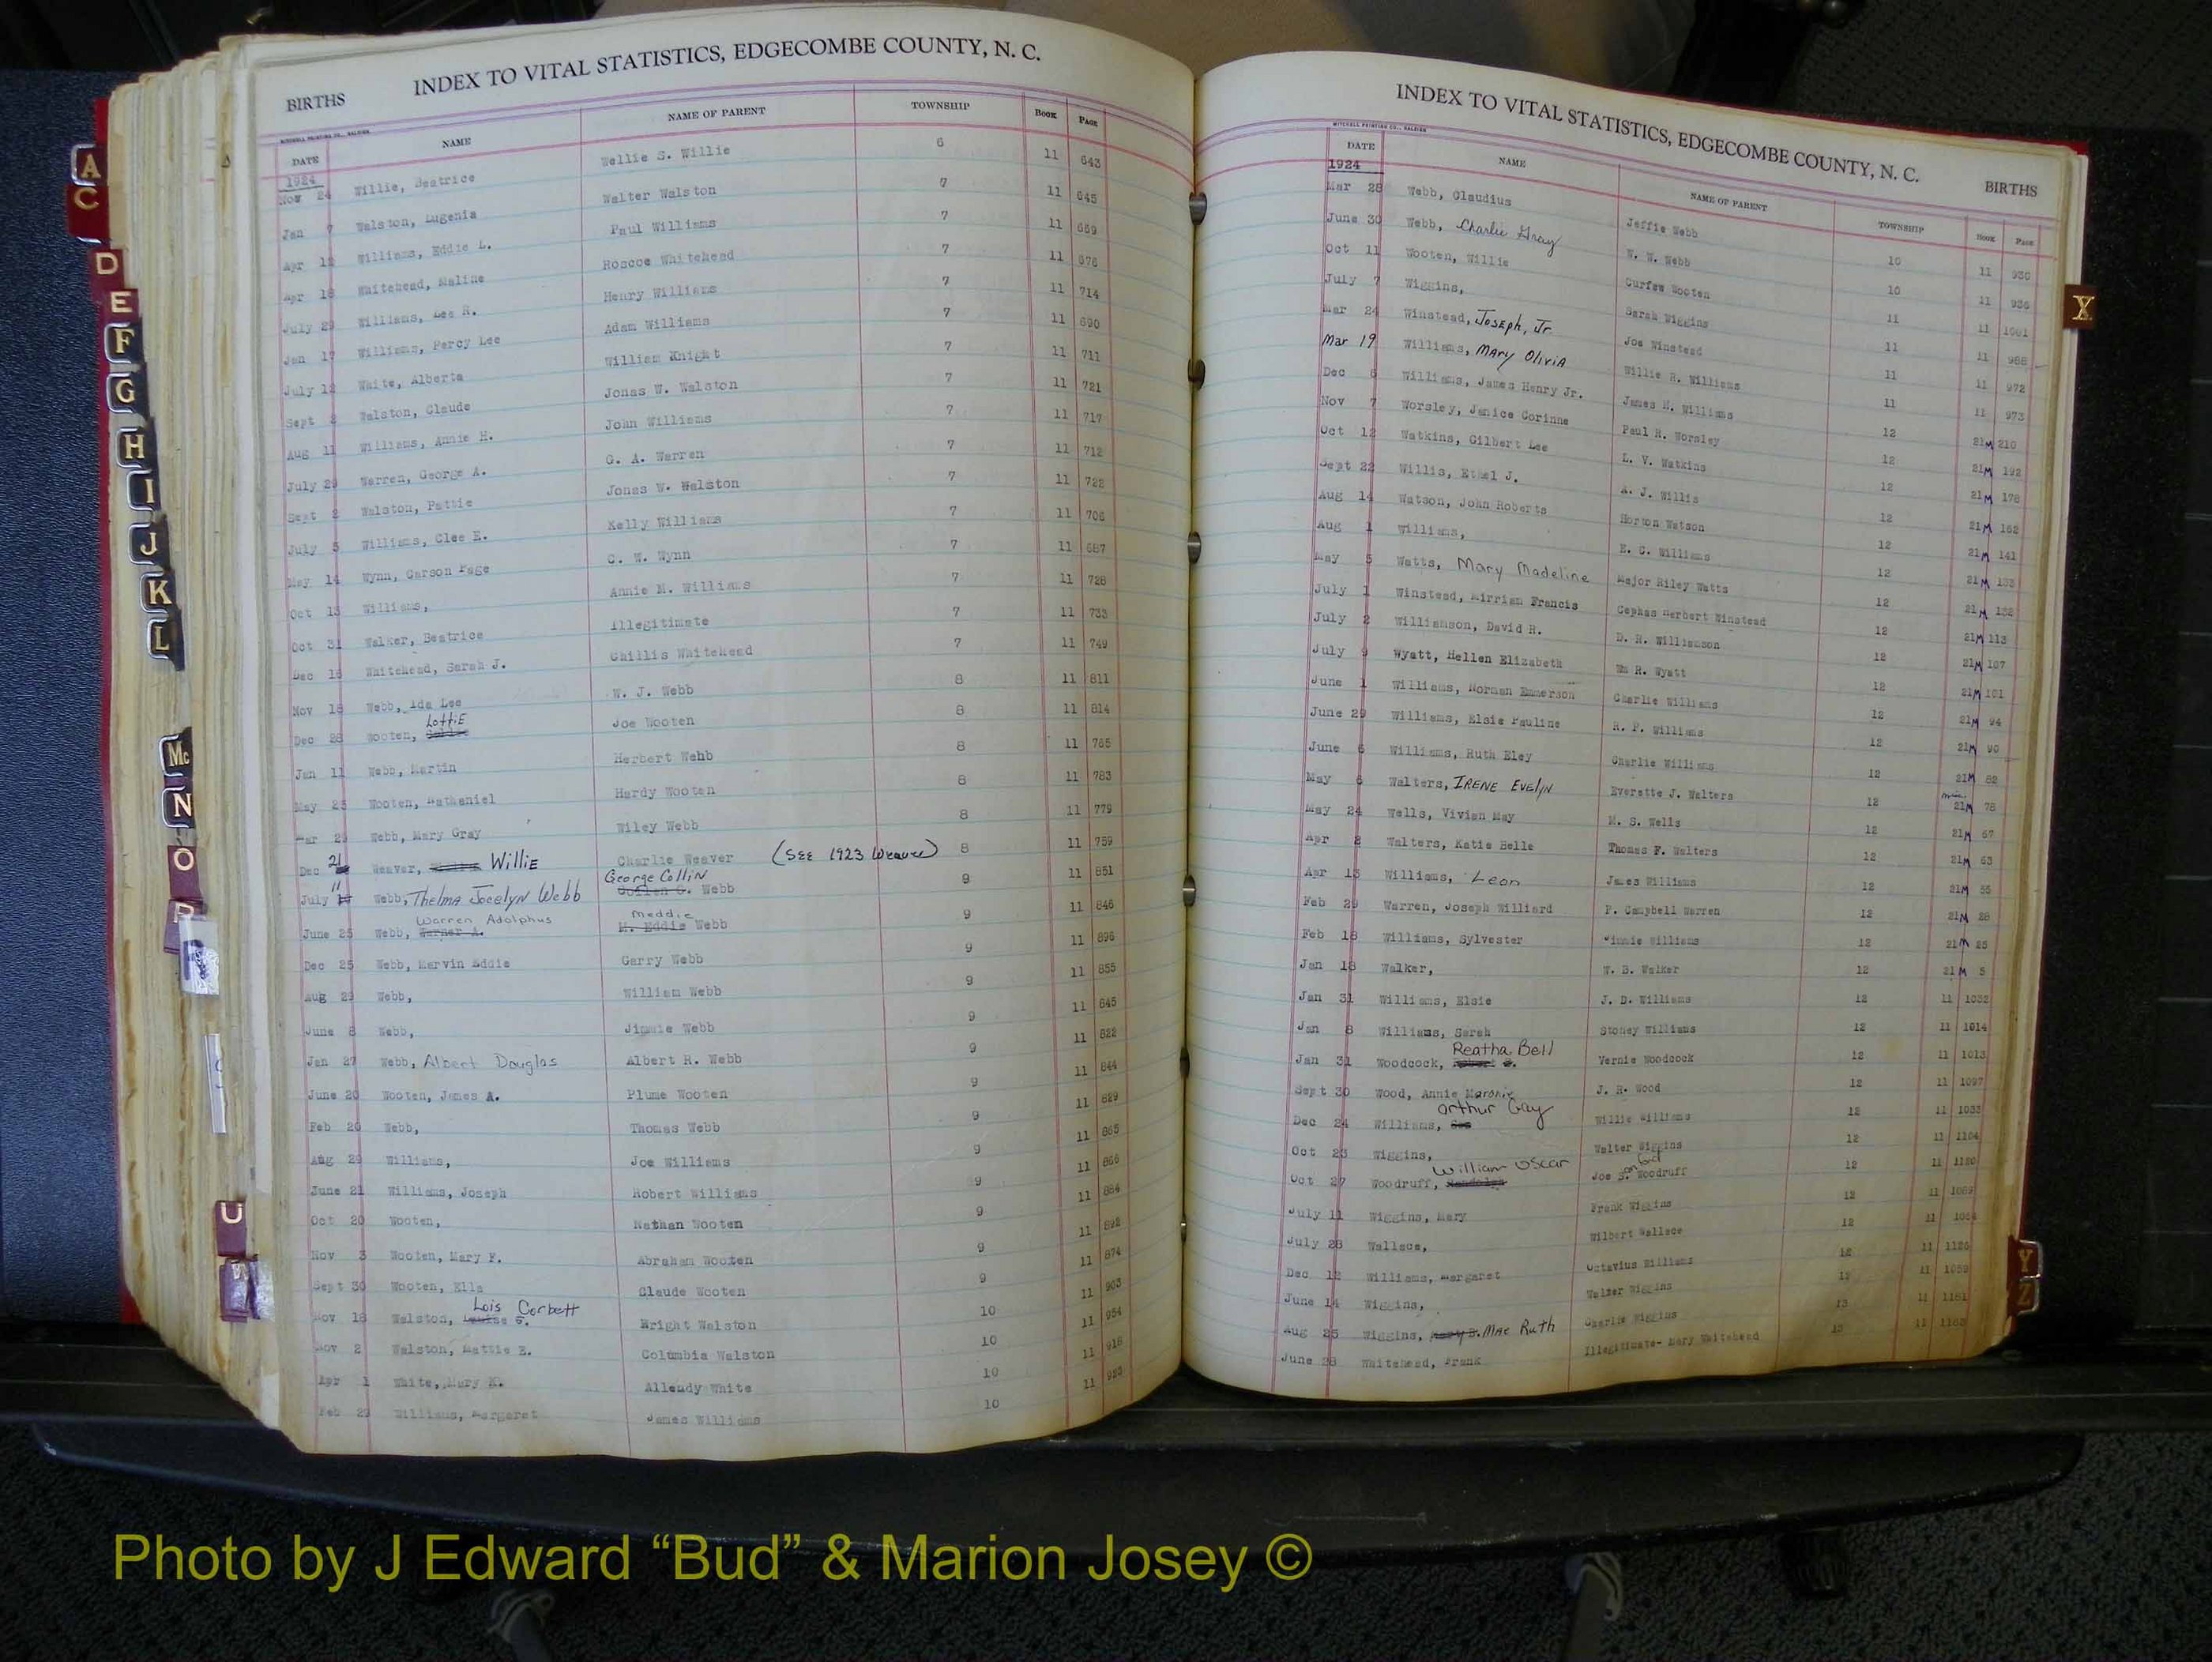 INDEX TO VITAL STATISTICS, EDGECOMBE COUNTY, N. C.
BIRTHS
MITCHELL PRINTING CO., RALEIGH
DATE NAME NAME OF PARENT TOWNSHIP BOOK PAGE
1924
Nov 24 Willie, Beatrice Wellie S. Willie 6 11 643
Jan 7 Walston, Eugenia Walter Walston 7 11 645
Apr 12 Williams, Eddie L. Paul Williams 7 11 669
Apr 18 Whitehead, Maline Roscoe Whitehead 7 11 676
July 29 Williams, Lee R. Henry Williams 7 11 714
Jan 17 Williams, Percy Lee Adam Williams 7 11 690
July 12 White, Alberta William Knight 7 11 711
Sept 2 Walston, Claude Jonas W. Walston 7 11 721
Aug 11 Williams, Annie H. John Williams 7 11 717
July 29 Warren, George A. G. A. Warren 7 11 712
Sept 2 Walston, Pattie Jonas W. Walston 7 11 722
July 5 Williams, Clee E. Kelly Williams 7 11 706
May 14 Wynn, Carson Page C. W. Wynn 7 11 687
Oct 13 Williams, Annie M. Williams 7 11 728
Oct 31 Walker, Beatrice Illegitimate 7 11 733
Dec 18 Whitehead, Sarah J. Chillis Whitehead 7 11 749
Nov 18 Webb, Ida Lee W. J. Webb 8 11 811
Dec 28 Wooten, Lottie Joe Wooten 8 11 814
Jan 11 Webb, Martin Herbert Webb 8 11 765
May 25 Wooten, Nathaniel Hardy Wooten 8 11 783
Mar 29 Webb, Mary Gray Wiley Webb 8 11 779
Dec 21 Weaver, Willie Charlie Weaver (SEE 1923 Weaver) 8 11 759
July 11 Webb, Thelma Jocelyn Webb George Collin Webb 9 11 851
June 25 Webb, Warner A. Warren Adolphus M. Eddie Meddie Webb 9 11 846
Dec 25 Webb, Marvin Eddie Garry Webb 9 11 896
Aug 29 Webb, William Webb 9 11 855
June 8 Webb, Jimmie Webb 9 11 845
Jan 27 Webb, Albert Douglas Albert R. Webb 9 11 822
June 20 Wooten, James A. Plume Wooten 9 11 844
Feb 20 Webb, Thomas Webb 9 11 829
Aug 29 Williams, Joe Williams 9 11 865
June 21 Williams, Joseph Robert Williams 9 11 866
Oct 20 Wooten, Nathan Wooten 9 11 884
Nov 3 Wooten, Mary F. Abraham Wooten 9 11 892
Sept 30 Wooten, Ella Claude Wooten 9 11 874
Nov 18 Walston, Lois Corbett Bright Walston 10 11 903
Nov 2 Walston, Mattie E. Columbia Walston 10 11 954
Apr 1 White, Mary K. Allendy White 10 11 918
Feb 23 Williams, Margaret James Williams 10 11 923
INDEX TO VITAL STATISTICS, EDGECOMBE COUNTY, N. C.
BIRTHS
MITCHELL PRINTING CO., RALEIGH
DATE NAME NAME OF PARENT TOWNSHIP BOOK PAGE
1924
Mar 28 Webb, Claudius Jeffie Webb 10 11 930
June 30 Webb, Charlie Gray W. W. Webb 10 11 936
Oct 11 Wooten, Willie Curfew Wooten 11 11 1001
July 7 Wiggins, Sarah Wiggins 11 11 988
Mar 24 Winstead, Joseph, Jr. Joe Winstead 11 11 972
Mar 19 Williams, Mary Olivia Willie R. Williams 11 11 973
Dec 6 Williams, James Henry Jr. James H. Williams 12 21M 210
Nov 7 Worsley, Janice Corinne Paul R. Worsley 12 21M 192
Oct 12 Watkins, Gilbert Lee L. V. Watkins 12 21M 178
Sept 22 Willis, Ethel J. A. J. Willis 12 21M 162
Aug 14 Watson, John Roberts Horton Watson 12 21M 141
Aug 1 Williams, E. C. Williams 12 21M 133
May 5 Watts, Mary Madeline Major Riley Watts 12 21M 132
July 1 Winstead, Mirriam Francis Cephas Herbert Winstead 12 21M 113
July 2 Williamson, David R. D. R. Williamson 12 21M 107
July 9 Wyatt, Hellen Elizabeth Wm R. Wyatt 12 21M 101
June 1 Williams, Norman Emmerson Charlie Williams 12 21M 94
June 29 Williams, Elsie Pauline R. F. Williams 12 21M 90
June 6 Williams, Ruth Eley Charlie Williams 12 21M 82
May 6 Walters, Irene Evelyn Everette J. Walters 12 21M 78
May 24 Wells, Vivian May M. S. Wells 12 21M 67
Apr 2 Walters, Katie Belle Thomas F. Walters 12 21M 63
Apr 13 Williams, Leon James Williams 12 21M 55
Feb 29 Warren, Joseph Williard P. Campbell Warren 12 21M 28
Feb 18 Williams, Sylvester Williams 12 21M 25
Jan 18 Walker, W. B. Walker 12 21M 5
Jan 31 Williams, Elsie J. D. Williams 12 11 1032
Jan 8 Williams, Sarah Stoney Williams 12 11 1014
Jan 31 Woodcock, Reatha Bell Vernie Woodcock 12 11 1013
Sept 30 Wood, Annie Maronie J. R. Wood 12 11 1097
Dec 24 Williams, Arthur Gay Willie Williams 12 11 1033
Oct 23 Wiggins, Walter Wiggins 12 11 1104
Oct 27 Woodruff, William Oscar Joe S. Woodruff 12 11 1120
July 11 Wiggins, Mary Frank Wiggins 12 11 1089
July 28 Wallace, Wilbert Wallace 12 11
Dec 12 Williams, Margaret Octavius Williams 12 11 1126
June 14 Wiggins, Walter Wiggins 12 11 1059
Aug 25 Wiggins, Mae Ruth Charlie Wiggins 13 11 1181
June 28 Whitehead, Frank Illegitimate- Mary Whitehead 13 11 1163
A
C
D
E
F
G
H
I
J
K
L
Mc
N
O
P
U
W
X
Y
Z
Photo by J Edward “Bud” & Marion Josey ©